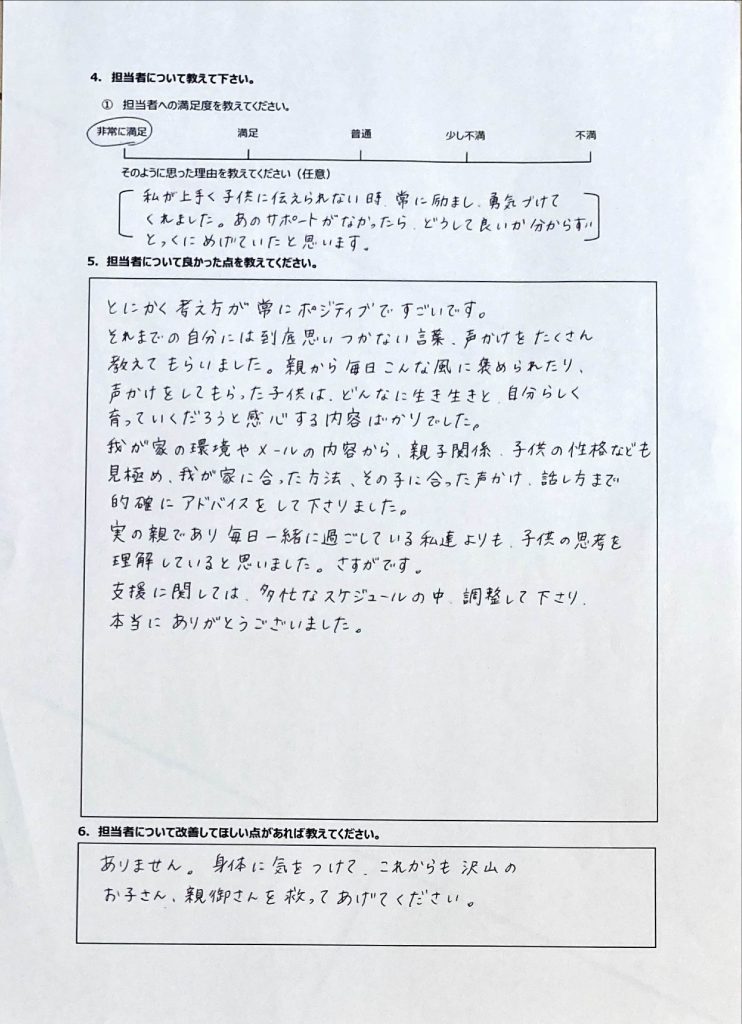 4. 担当者について教えて下さい。
① 担当者への満足度を教えてください。
非常に満足 満足 普通 少し不満 不満
そのように思った理由を教えてください（任意）
私が上手く子供に伝えられない時、常に励まし、勇気づけて
くれました。あのサポートがなかったら、どうして良いか分からず
とっくにめげていたと思います。
5. 担当者について良かった点を教えてください。
とにかく考え方が常にポジティブですごいです。
それまでの自分には到底思いつかない言葉、声かけをたくさん
教えてもらいました。親から毎日こんな風に褒められたり、
声かけをしてもらった子供は、どんなに生き生きと、自分らしく
育っていくだろうと感心する内容ばかりでした。
我が家の環境やメールの内容から、親子関係、子供の性格なども
見極め、我が家に合った方法、その子に合った声かけ、話し方まで
的確にアドバイスをして下さりました。
実の親であり毎日一緒に過ごしている私達よりも、子供の思考を
理解していると思いました。さすがです。
支援に関しては、多忙なスケジュールの中、調整して下さり、
本当にありがとうございました。
6. 担当者について改善してほしい点があれば教えてください。
ありません。身体に気をつけて、これからも沢山の
お子さん、親御さんを救ってあげてください。